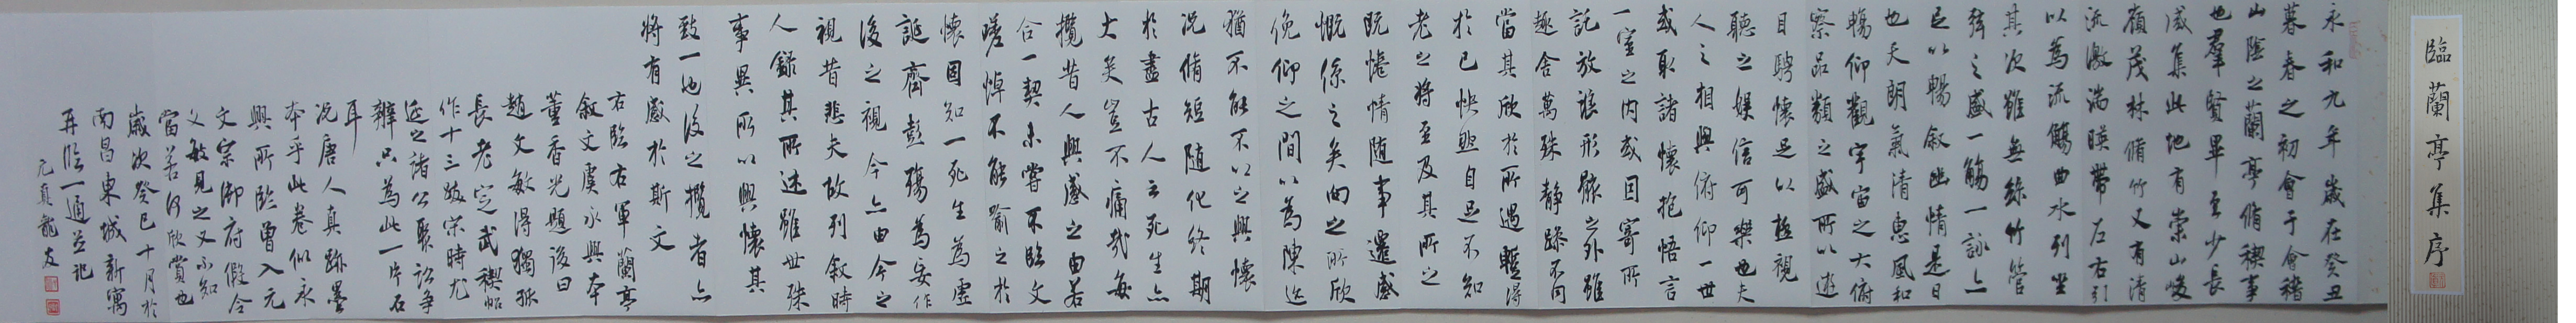 臨蘭亭集序
永和九年歲在癸丑
暮春之初會于會稽
山陰之蘭亭脩稧事
也羣賢畢至少長
咸集此地有崇山峻
嶺茂林脩竹又有清
流激湍暎帶左右引
以為流觴曲水列坐
其次雖無絲竹管
弦之盛一觴一詠亦
足以暢敘幽情是日
也天朗氣清惠風和
暢仰觀宇宙之大俯
察品類之盛所以遊
目騁懷足以極視
聽之娛信可樂也夫
人之相與俯仰一世
或取諸懷抱悟言
一室之內或因寄所
託放浪形骸之外雖
趣舍萬殊靜躁不同
當其欣於所遇蹔得
於己怏然自足不知
老之將至及其所之
既惓情隨事遷感
慨係之矣向之所欣
俛仰之間以為陳迹
猶不能不以之興懷
況脩短隨化終期
於盡古人云死生亦
大矣豈不痛哉每
攬昔人興感之由若
合一契未嘗不臨文
嗟悼不能喻之於
懷固知一死生為虛
誕齊彭殤為妄作
後之視今亦由今之
視昔悲夫故列敘時
人錄其所述雖世殊
事異所以興懷其
致一也後之攬者亦
將有感於斯文
右臨右軍蘭亭
敘文虞永興本
董香光題後曰
趙文敏得獨孤
長老定武稧帖
作十三跋宋時尤
延之諸公聚訟爭
辯只為此一片石
耳
況唐人真跡墨
本乎此卷似永
興所臨曾入元
文宗御府假令
文敏見之又不知
當若何欣賞也
歲次癸巳十月於
南昌東城新寓
再臨一通並記
元真龍友